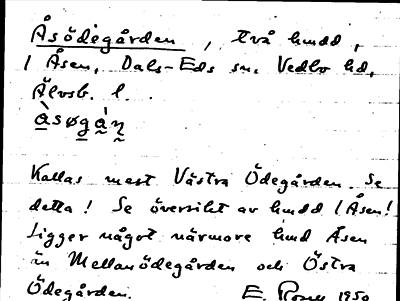 Åsödegården, två hmdd,
i Åsen, Dals-Eds sn. Vedbo hd,
Älvsb. l.
àsøgàn
Kallas mest Västra Ödegården. Se
detta! Se översikt av hmdd i Åsen!
Ligger något närmore hmd Åsen
än Mellanödegården och Östra
Ödegården. E. 1950